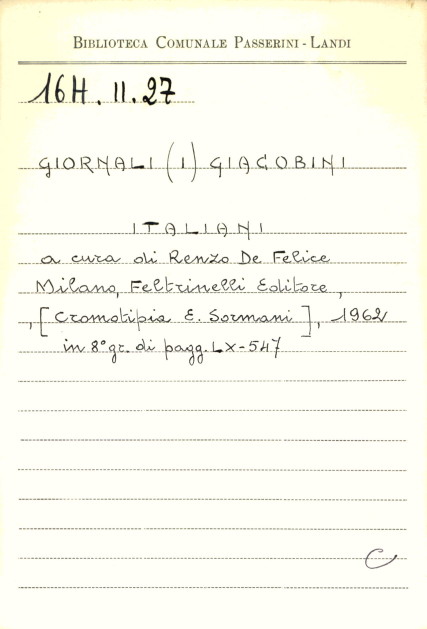 BIBLIOTECA COMUNALE PASSERINI - LANDI
16H. II. 27
GIORNALI (I) GIACOBINI
ITALIANI
a cura di Renzo De Felice
Milano, Feltrinelli Editore,
, [Cromotipia E. Sormani], 1962
in 8° gr. di pagg. LX-547
C